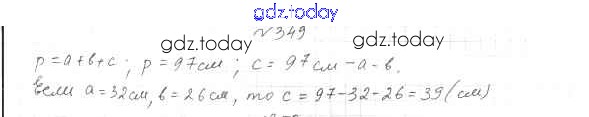 gdz.today
№349
gdz.today gdz.today
p=a+b+c; p=97см; c=97см-a-b.
Если a=32см, b=26см, то c=97-32-26=39(см)